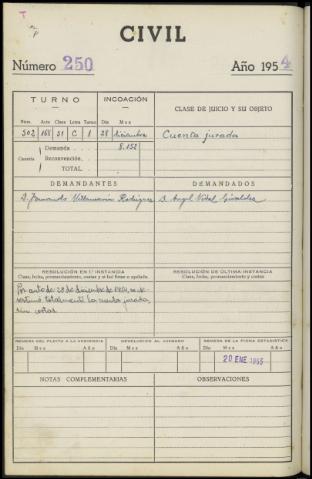 T
CIVIL
Número 250 Año 1954
TURNO INCOACIÓN CLASE DE JUICIO Y SU OBJETO
Núm. Año Clase Letra Turno Día Mes
502 51 C 1 28 diciembre Cuenta jurada
Cuantía Demanda 8.152
Reconvención
TOTAL
DEMANDANTES DEMANDADOS
D. Fernando Villamarín Rodríguez D. Angel Vidal
RESOLUCIÓN EN 1.ª INSTANCIA RESOLUCIÓN DE ÚLTIMA INSTANCIA
Clase, fecha, pronunciamiento, costas y si fué firme o apelada. Clase, fecha, pronunciamiento y costas
Por auto de 28 de diciembre de 1954, se
totalmente la cuenta jurada,
sin costas
REMESA DEL PLEITO A LA AUDIENCIA DEVOLUCIÓN AL JUZGADO REMESA DE LA FICHA ESTADÍSTICA
Día Mes Año Día Mes Año Día Mes Año
20 ENE 1955
NOTAS COMPLEMENTARIAS OBSERVACIONES